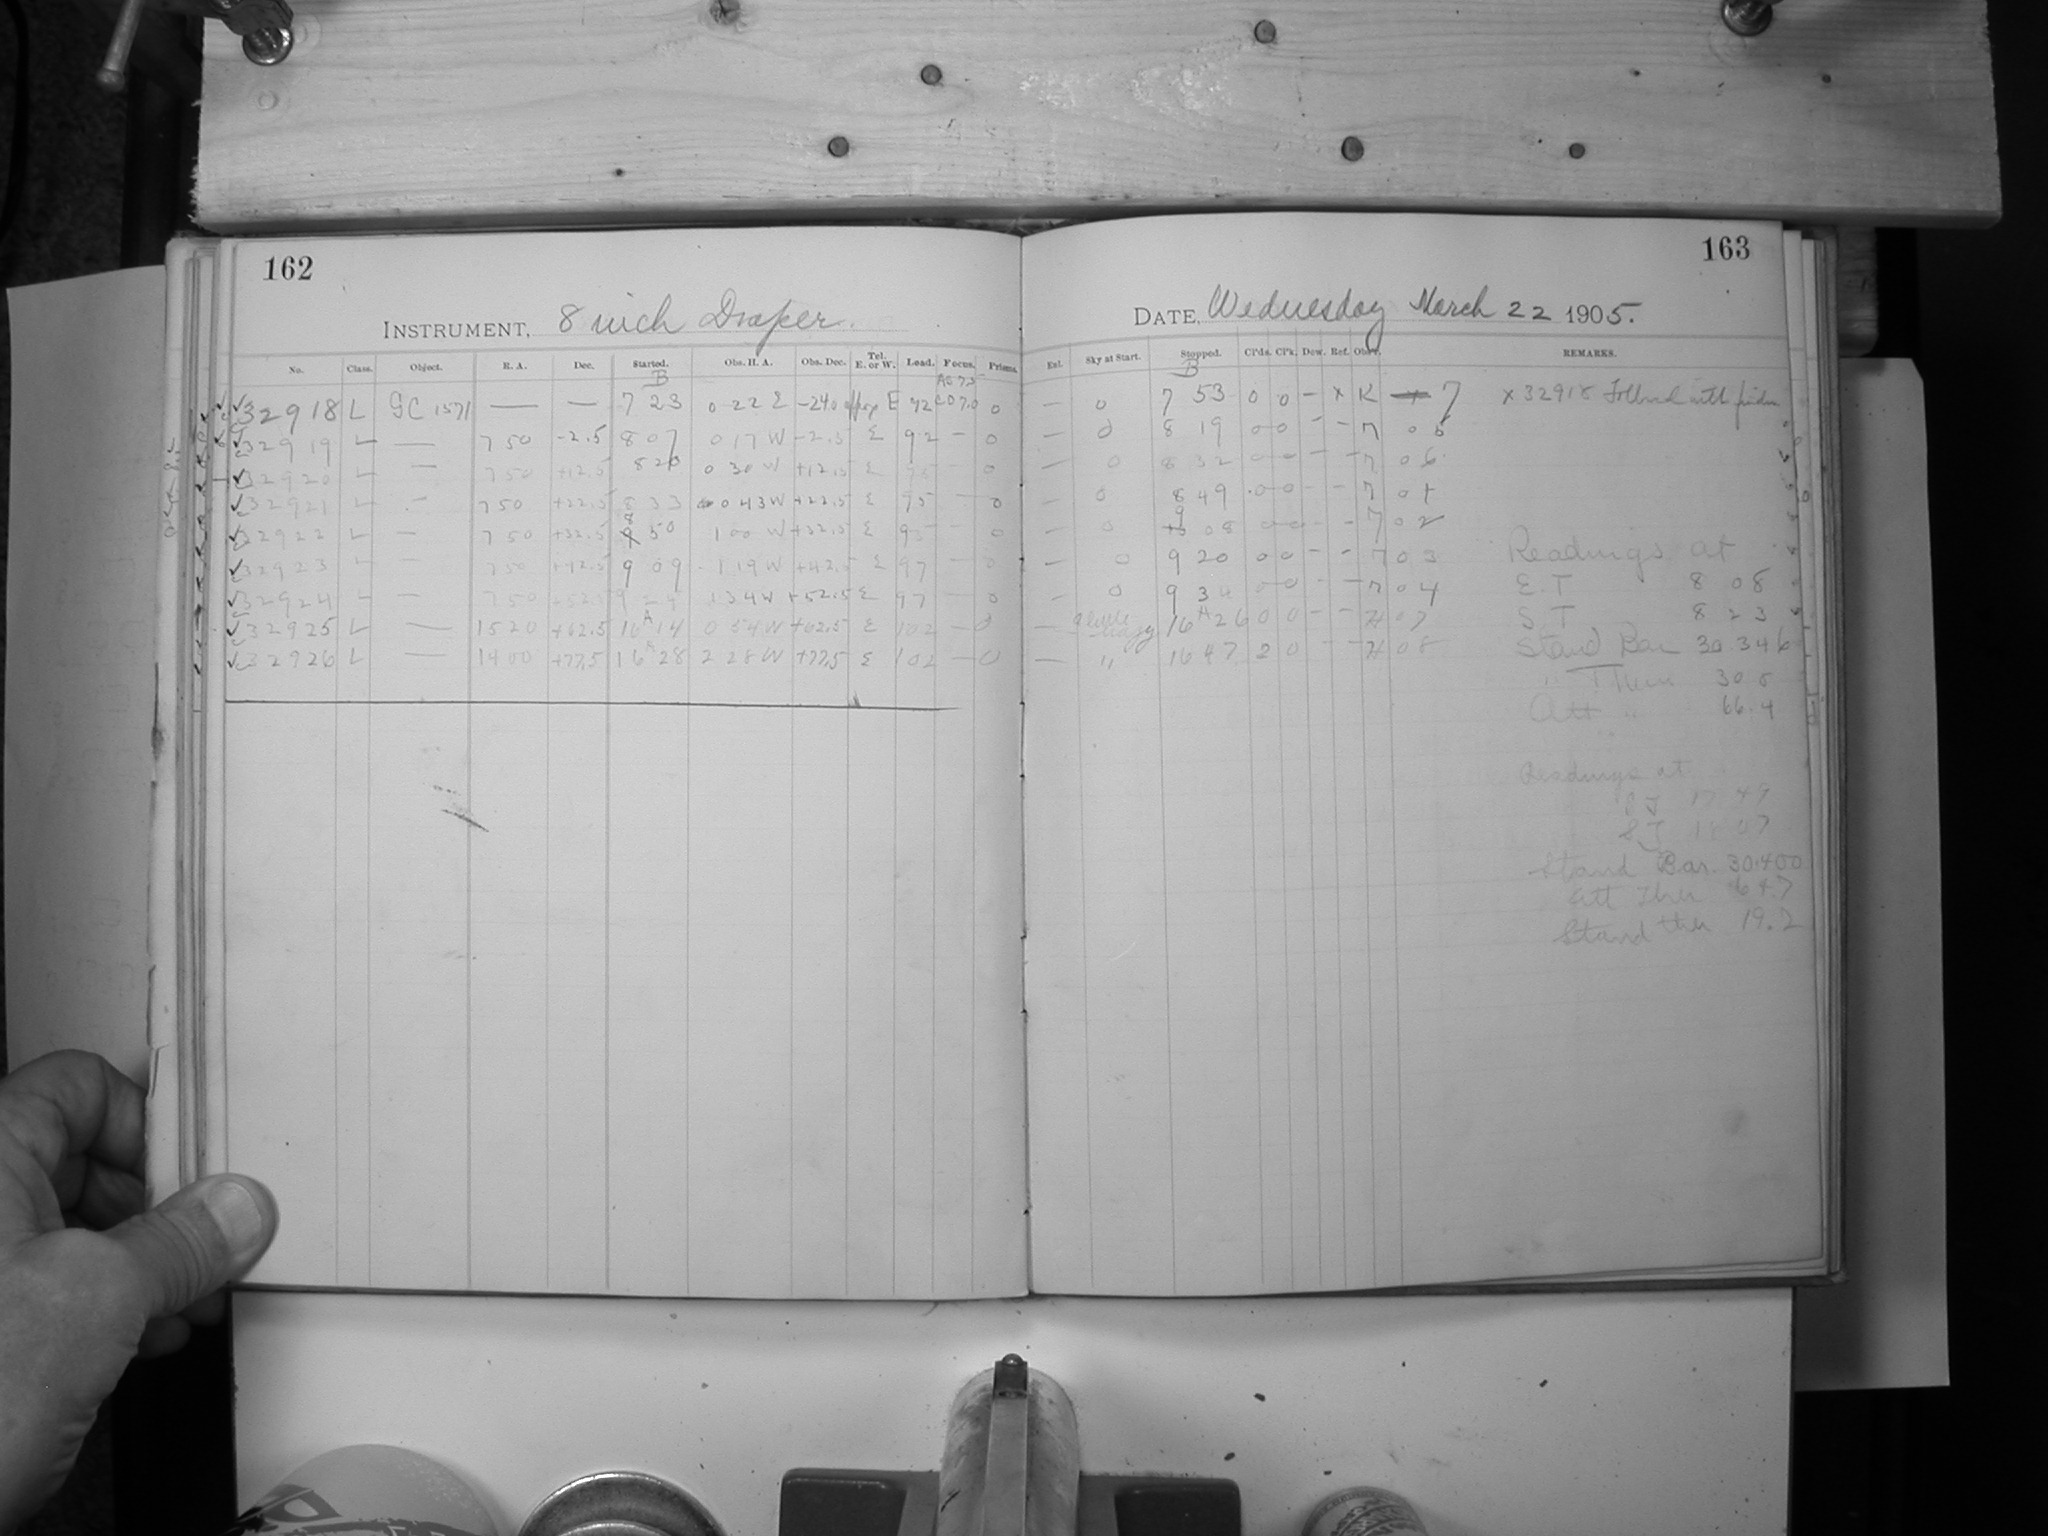 162
INSTRUMENT, 8 inch Draper.
No. Class. Object. R. A. Dec. Started. Obs. H. A. Obs. Dec. Tel. E. or W. Load. Focus. Prisms.
B
32918 L GC 1571 — — 7 23 0 22 E -24.0 E 92 0
32919 L — 7 50 -2.5 8 07 0 17 W -2.5 E 92 — 0
32920 L — 7 50 +12.5 8 20 0 30 W +12.5 E 95 — 0
32921 L — 7 50 +22.5 8 33 0 43 W +22.5 E 95 — 0
32922 L — 7 50 +32.5 8 50 1 00 W +32.5 E 95 — 0
32923 L — 7 50 +42.5 9 09 1 19 W +42.5 E 97 — 0
32924 L — 7 50 +52.5 9 24 1 34 W +52.5 E 97 — 0
32925 L — 15 20 +62.5 16 A 14 0 54 W +62.5 E 102 — 0
32926 L — 14 00 +77.5 16 28 2 28 W +77.5 E 102 — 0
163
DATE, Wednesday March 22 1905.
Exl. Sky at Start. Stopped. Cl'ds. Cl'k. Dew. Ref. Obs'r. REMARKS.
B
— 0 7 53 0 0 — x K 7 x 32918 Followed with finder
— 0 8 19 0 0 - - 7 05
— 0 8 32 0 0 - - 7 06
— 0 8 49 0 0 - - 7 01
— 0 9 08 0 0 - - 7 02
0 9 20 0 0 - - 7 03
0 9 34 0 0 - - 7 04
— 16 A 26 0 0 - - H 07
— " 16 47 2 0 - - H 08
Readings at
E. T 8 08
S. T 8 23
Stand Bar 30.346
" Ther 30.5
Att " 66.4
Readings at
E T 17 49
S T 18 07
Stand Bar. 30.400
Att Ther 64.7
Stand ther 19.2